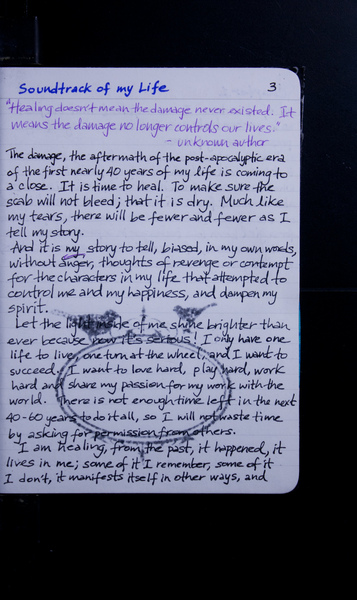 Soundtrack of my Life 3
"Healing doesn't mean the damage never existed. It
means the damage no longer controls our lives."
- unknown author
The damage, the aftermath of the post-apocalyptic era
of the first nearly 40 years of my life is coming to
a close. It is time to heal. To make sure the
scab will not bleed; that it is dry. Much like
my tears, there will be fewer and fewer as I
tell my story.
And it is my story to tell, biased, in my own words,
without anger, thoughts of revenge or contempt
for the characters in my life that attempted to
control me and my happiness, and dampen my
spirit.
Let the light inside of me shine brighter than
ever because now it's serious! I only have one
life to live, one turn at the wheel, and I want to
succeed. I want to love hard, play hard, work
hard and share my passion for my work with the
world. There is not enough time left in the next
40-60 years to do it all, so I will not waste time
by asking for permission from others.
I am healing, from the past, it happened, it
lives in me; some of it I remember, some of it
I don't, it manifests itself in other ways, and